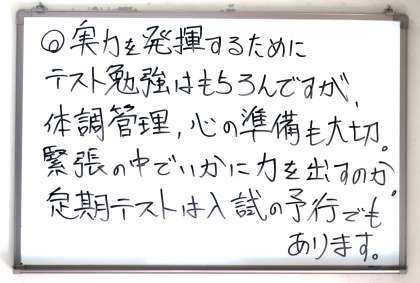 ◎実力を発揮するために
テスト勉強はもちろんですが、
体調管理,心の準備も大切。
緊張の中でいかに力を出すのか。
定期テストは入試の予行でも
あります。